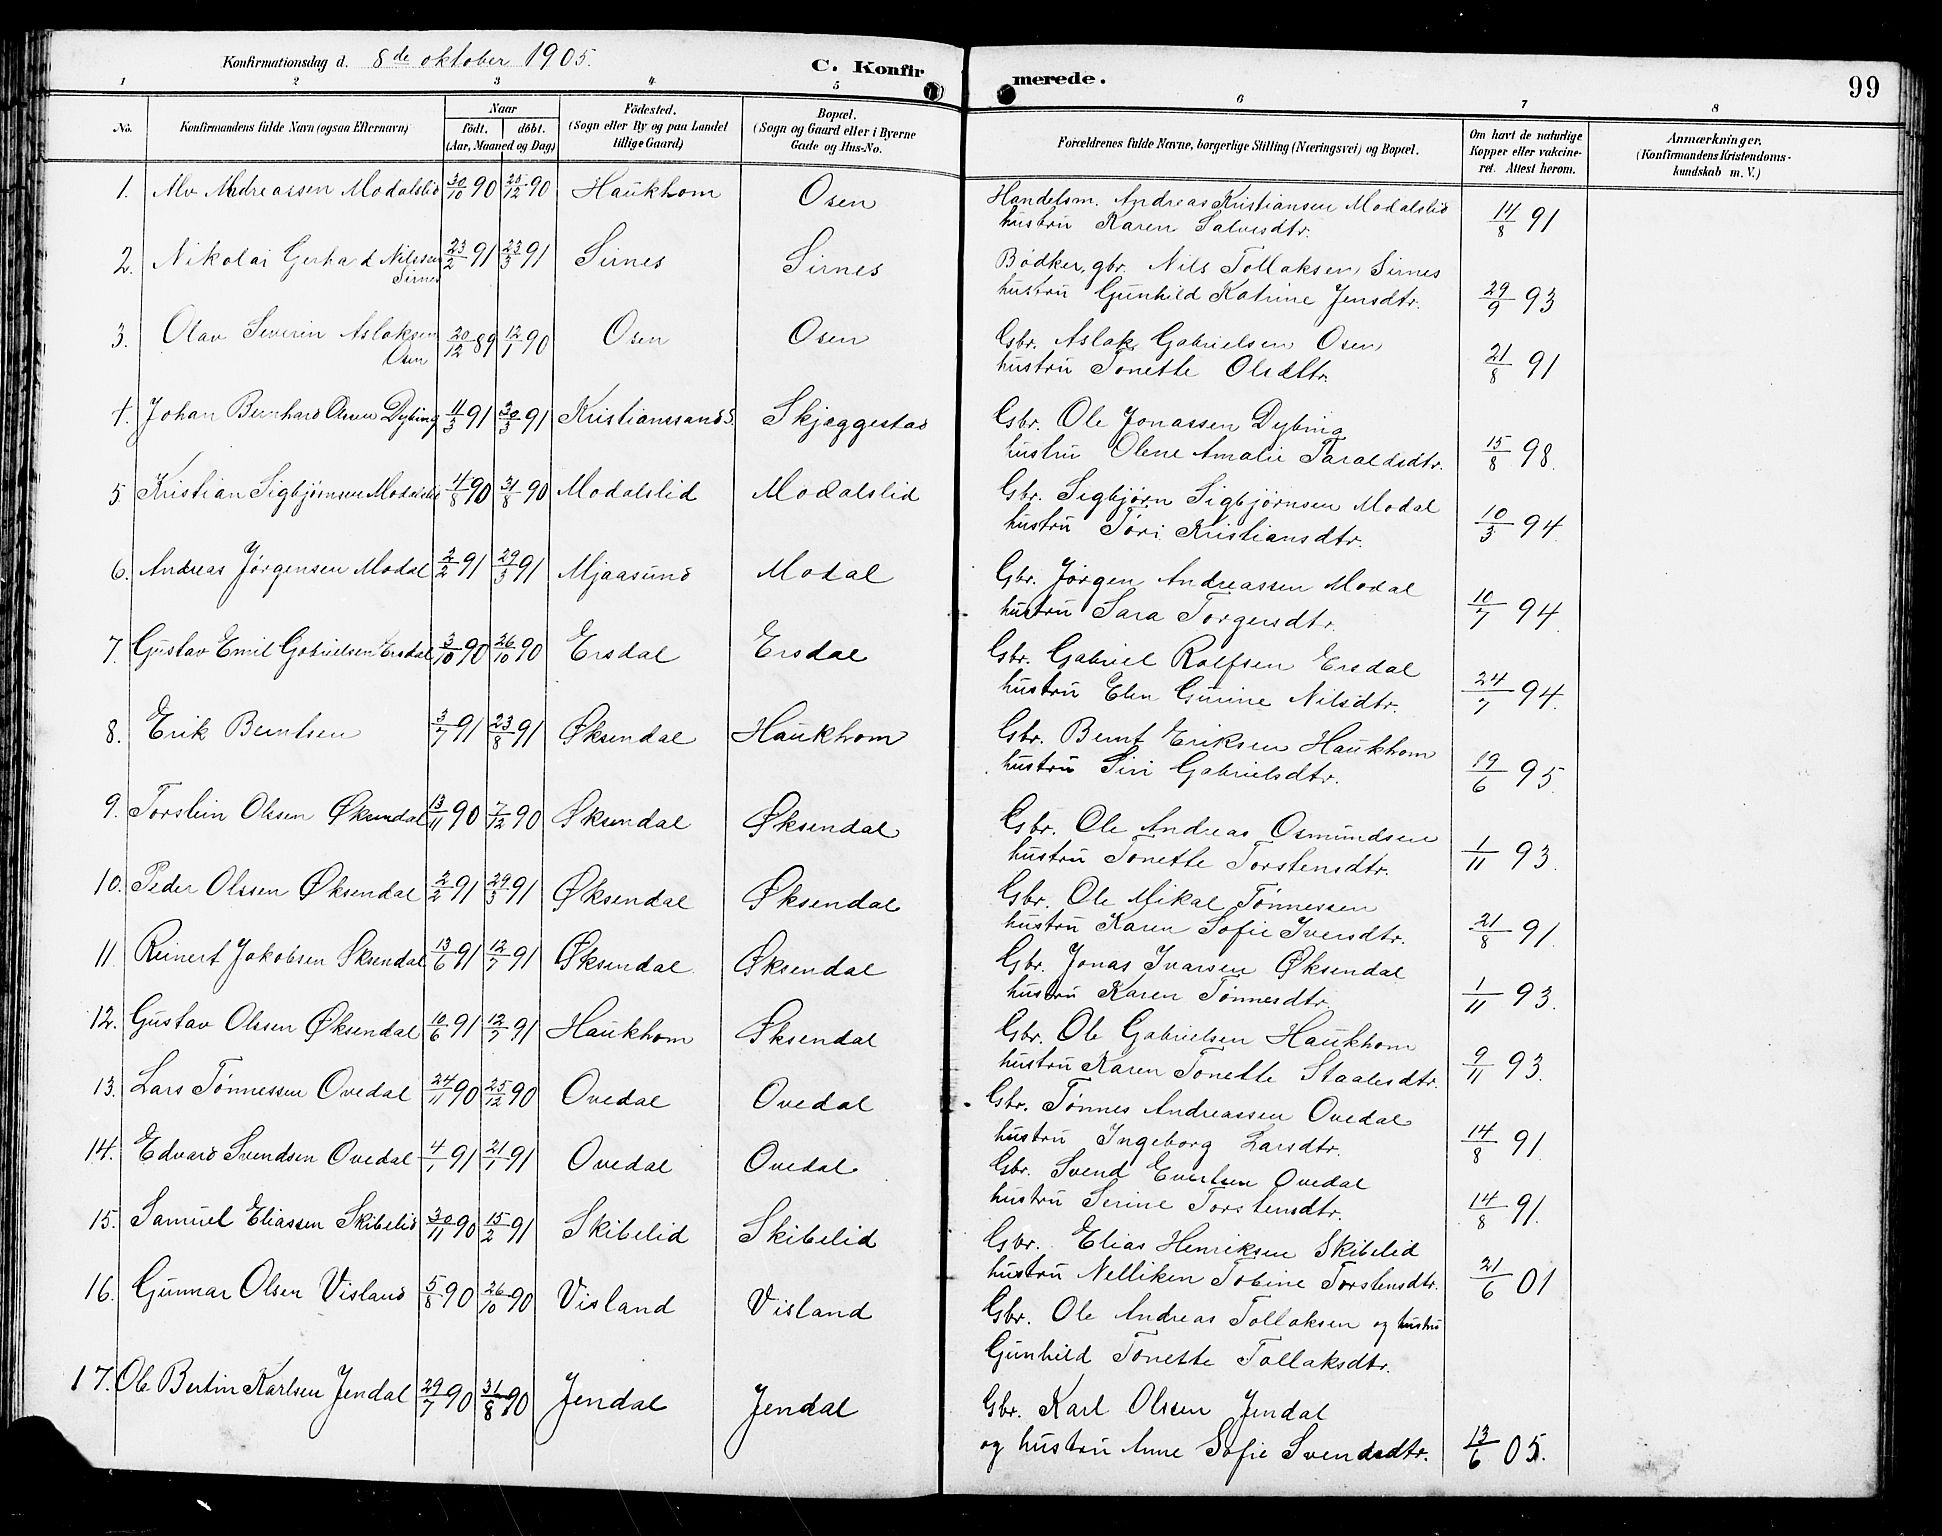 Konfirmationsdag d. 8de oktober 1905.
C. Konfirmerede.
99
1 2 3 4 5 6 7 8
No.
Konfirmandens fulde Navn (ogsaa Efternavn)
Naar
födt. döbt.
(Aar, Maaned og Dag)
Födested.
(Sogn eller By og paa Landet
tillige Gaard)
Bopæl.
(Sogn og Gaard eller i Byerne
Gade og Hus-No.
Forældrenes fulde Navne, borgerlige Stilling (Næringsvei) og Bopæl.
Om havt de naturlige
Kopper eller vakcine-
ret. Attest herom.
Anmærkninger.
(Konfirmandens Kristendoms-
kundskab m. V.)
1. Andreassen Modalslid 30/10 90 25/12 90 Haukhom Osen
Handelsm. Andreas Kristiansen Modalslid
hustru Karen Salvesdtr. 14/8 91
2. Nikolai Gerhard Nilssen
Sirnes 23/2 91 23/3 91 Sirnes Sirnes
Bødker, gbr. Nils Tollaksen Sirnes
hustru Gunhild Katrine Jensdtr. 29/9 93
3. Olav Severin Aslaksen
Osen 20/12 89 12/1 90 Osen Osen
Gbr. Aslak Gabrielsen Osen
hustru Tonette Olsdtr. 21/8 91
4. Johan Bernhard Olsen Dybing 11/3 91 30/3 91 Kristianssand S. Skjeggestad
Gbr. Ole Jonassen Dybing
hustru Olene Amalie Taraldsdtr. 15/8 98.
5 Kristian Sigbjørnsen Modalslid 4/8 90 31/8 90 Modalslid Modalslid
Gbr. Sigbjørn Sigbjørnsen Modal
hustru Tøri Kristiansdtr. 10/3 94.
6. Andreas Jørgensen Modal 2/2 91 29/3 91 Mjaasund Modal
Gbr. Jørgen Andreassen Modal
hustru Sara Torgersdtr. 10/7 94
7. Gustav Emil Gabrielsen Ersdal 3/10 90 26/10 90 Ersdal Ersdal
Gbr. Gabriel Rolfsen Ersdal
hustru Elen Gurine Nilsdtr. 24/7 94.
8. Erik Berntsen 3/7 91 23/8 91 Øksendal Haukhom
Gbr. Bernt Eriksen Haukhom
hustru Siri Gabrielsdtr. 19/6 95.
9. Torstein Olssen Øksendal 13/11 90 7/12 90 Øksendal Øksendal
Gbr. Ole Andreas Osmundsen
hustru Tonette Torstensdtr. 1/11 93.
10. Peder Olssen Øksendal 2/2 91 29/3 91 Øksendal Øksendal
Gbr. Ole Mikal Tønnessen
hustru Karen Sofie Iversdtr. 21/8 91.
11. Reinert Jakobsen Øksendal 13/6 91 12/7 91 Øksendal Øksendal
Gbr. Jonas Ivarsen Øksendal
hustru Karen Tønnesdtr. 1/11 93.
12. Gustav Olssen Øksendal 10/6 91 12/7 91 Haukhom Øksendal
Gbr. Ole Gabrielsen Haukhom
hustru Karen Tonette Staalesdtr. 9/11 93.
13. Lars Tønnessen Ovedal 24/11 90 25/12 90 Ovedal Ovedal
Gbr. Tønnes Andreassen Ovedal
hustru Ingeborg Larsdtr. 14/8 91.
14. Edvard Svendsen Ovedal 4/1 91 21/1 91 Ovedal Ovedal
Gbr. Svend Evertsen Ovedal
hustru Serine Torstensdtr. 14/8 91.
15. Samuel Eliassen Skibelid 30/11 90 15/2 91 Skibelid Skibelid
Gbr. Elias Henriksen Skibelid
hustru Nelliken Tobine Torstensdtr. 21/6 01
16. Gunnar Olsen Visland 5/8 90 26/10 90 Visland Visland
Gbr. Ole Andreas Tollaksen og hustru
Gunhild Tonette Tollaksdtr.
17. Ole Bertin Karlsen Jendal 29/7 90 31/8 90 Jendal Jendal
Gbr. Karl Olssen Jendal
og hustru Anne Sofie Svendsdtr. 13/6 05.